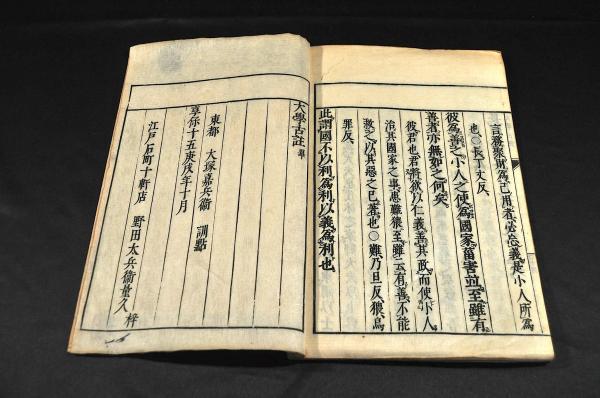 言務聚財為己用者必忘義是小人所為
也○長丁丈反
彼為善之小人之使為國家菑害並至雖有
善者亦無如之何矣
彼君也君將欲以仁義善其政而使小人
治其國家之事患難猥至雖云有善不能
救之以其惡之已著也○難乃旦反猥烏
罪反
此謂國不以利為利以義為利也
大學古註畢
東都 大塚嘉兵衛 訓點
享保十五庚戌年十月
江戸石町十軒店 野田太兵衛 梓